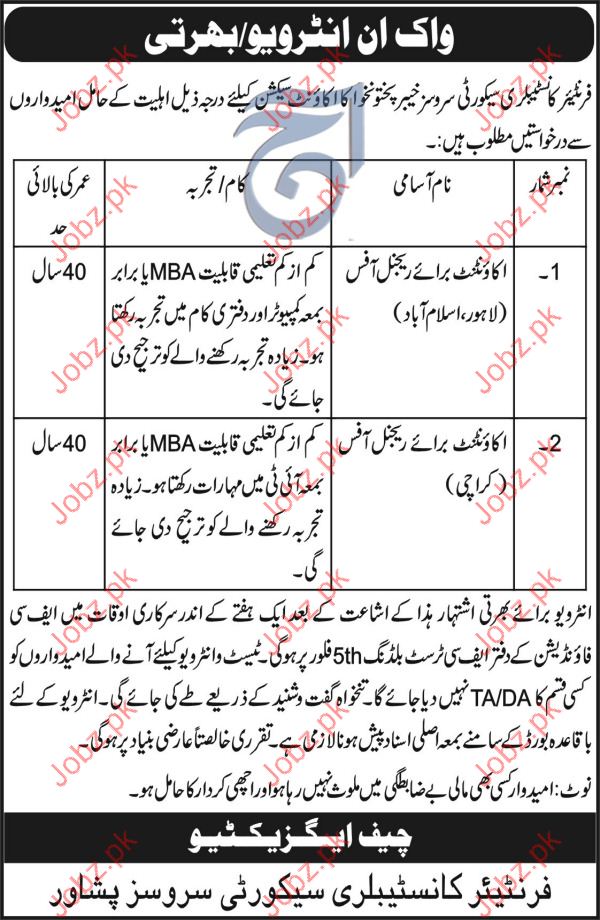 واک ان انٹرویو/بھرتی
فرنٹیئر کانسٹیبلری سیکورٹی سروسز خیبر پختونخوا کا اکاؤنٹ سیکشن کیلئے درجہ ذیل اہلیت کے حامل امیدواروں
سے درخواستیں مطلوب ہیں:۔
نمبر شمار
نام آسامی
کام/تجربہ
عمر کی بالائی
حد
1۔
اکاؤنٹنٹ برائے ریجنل آفس
(لاہور، اسلام آباد)
کم از کم تعلیمی قابلیت MBA یا برابر
بمعہ کمپیوٹر اور دفتری کام میں تجربہ رکھتا
ہو۔ زیادہ تجربہ رکھنے والے کو ترجیح دی
جائے گی۔
40 سال
2۔
اکاؤنٹنٹ برائے ریجنل آفس
(کراچی)
کم از کم تعلیمی قابلیت MBA یا برابر
بمعہ آئی ٹی میں مہارات رکھتا ہو۔ زیادہ
تجربہ رکھنے والے کو ترجیح دی جائے
گی۔
40 سال
انٹرویو برائے بھرتی اشتہار ہذا کے اشاعت کے بعد ایک ہفتے کے اندر سرکاری اوقات میں ایف سی
فاؤنڈیشن کے دفتر ایف سی ٹرسٹ بلڈنگ 5th فلور پر ہوگی۔ ٹیسٹ و انٹرویو کیلئے آنے والے امیدواروں کو
کسی قسم کا TA/DA نہیں دیا جائے گا۔ تنخواہ گفت و شنید کے ذریعے طے کی جائے گی۔ انٹرویو کے لئے
باقاعدہ بورڈ کے سامنے بمعہ اصلی اسناد پیش ہونا لازمی ہے۔ تقرری خالصتاً عارضی بنیاد پر ہوگی۔
نوٹ: امیدوار کسی بھی مالی بے ضابطگی میں ملوث نہیں رہا ہو اور اچھی کردار کا حامل ہو۔
چیف ایگزیکٹیو
فرنٹیئر کانسٹیبلری سیکورٹی سروسز پشاور
Jobz.pk